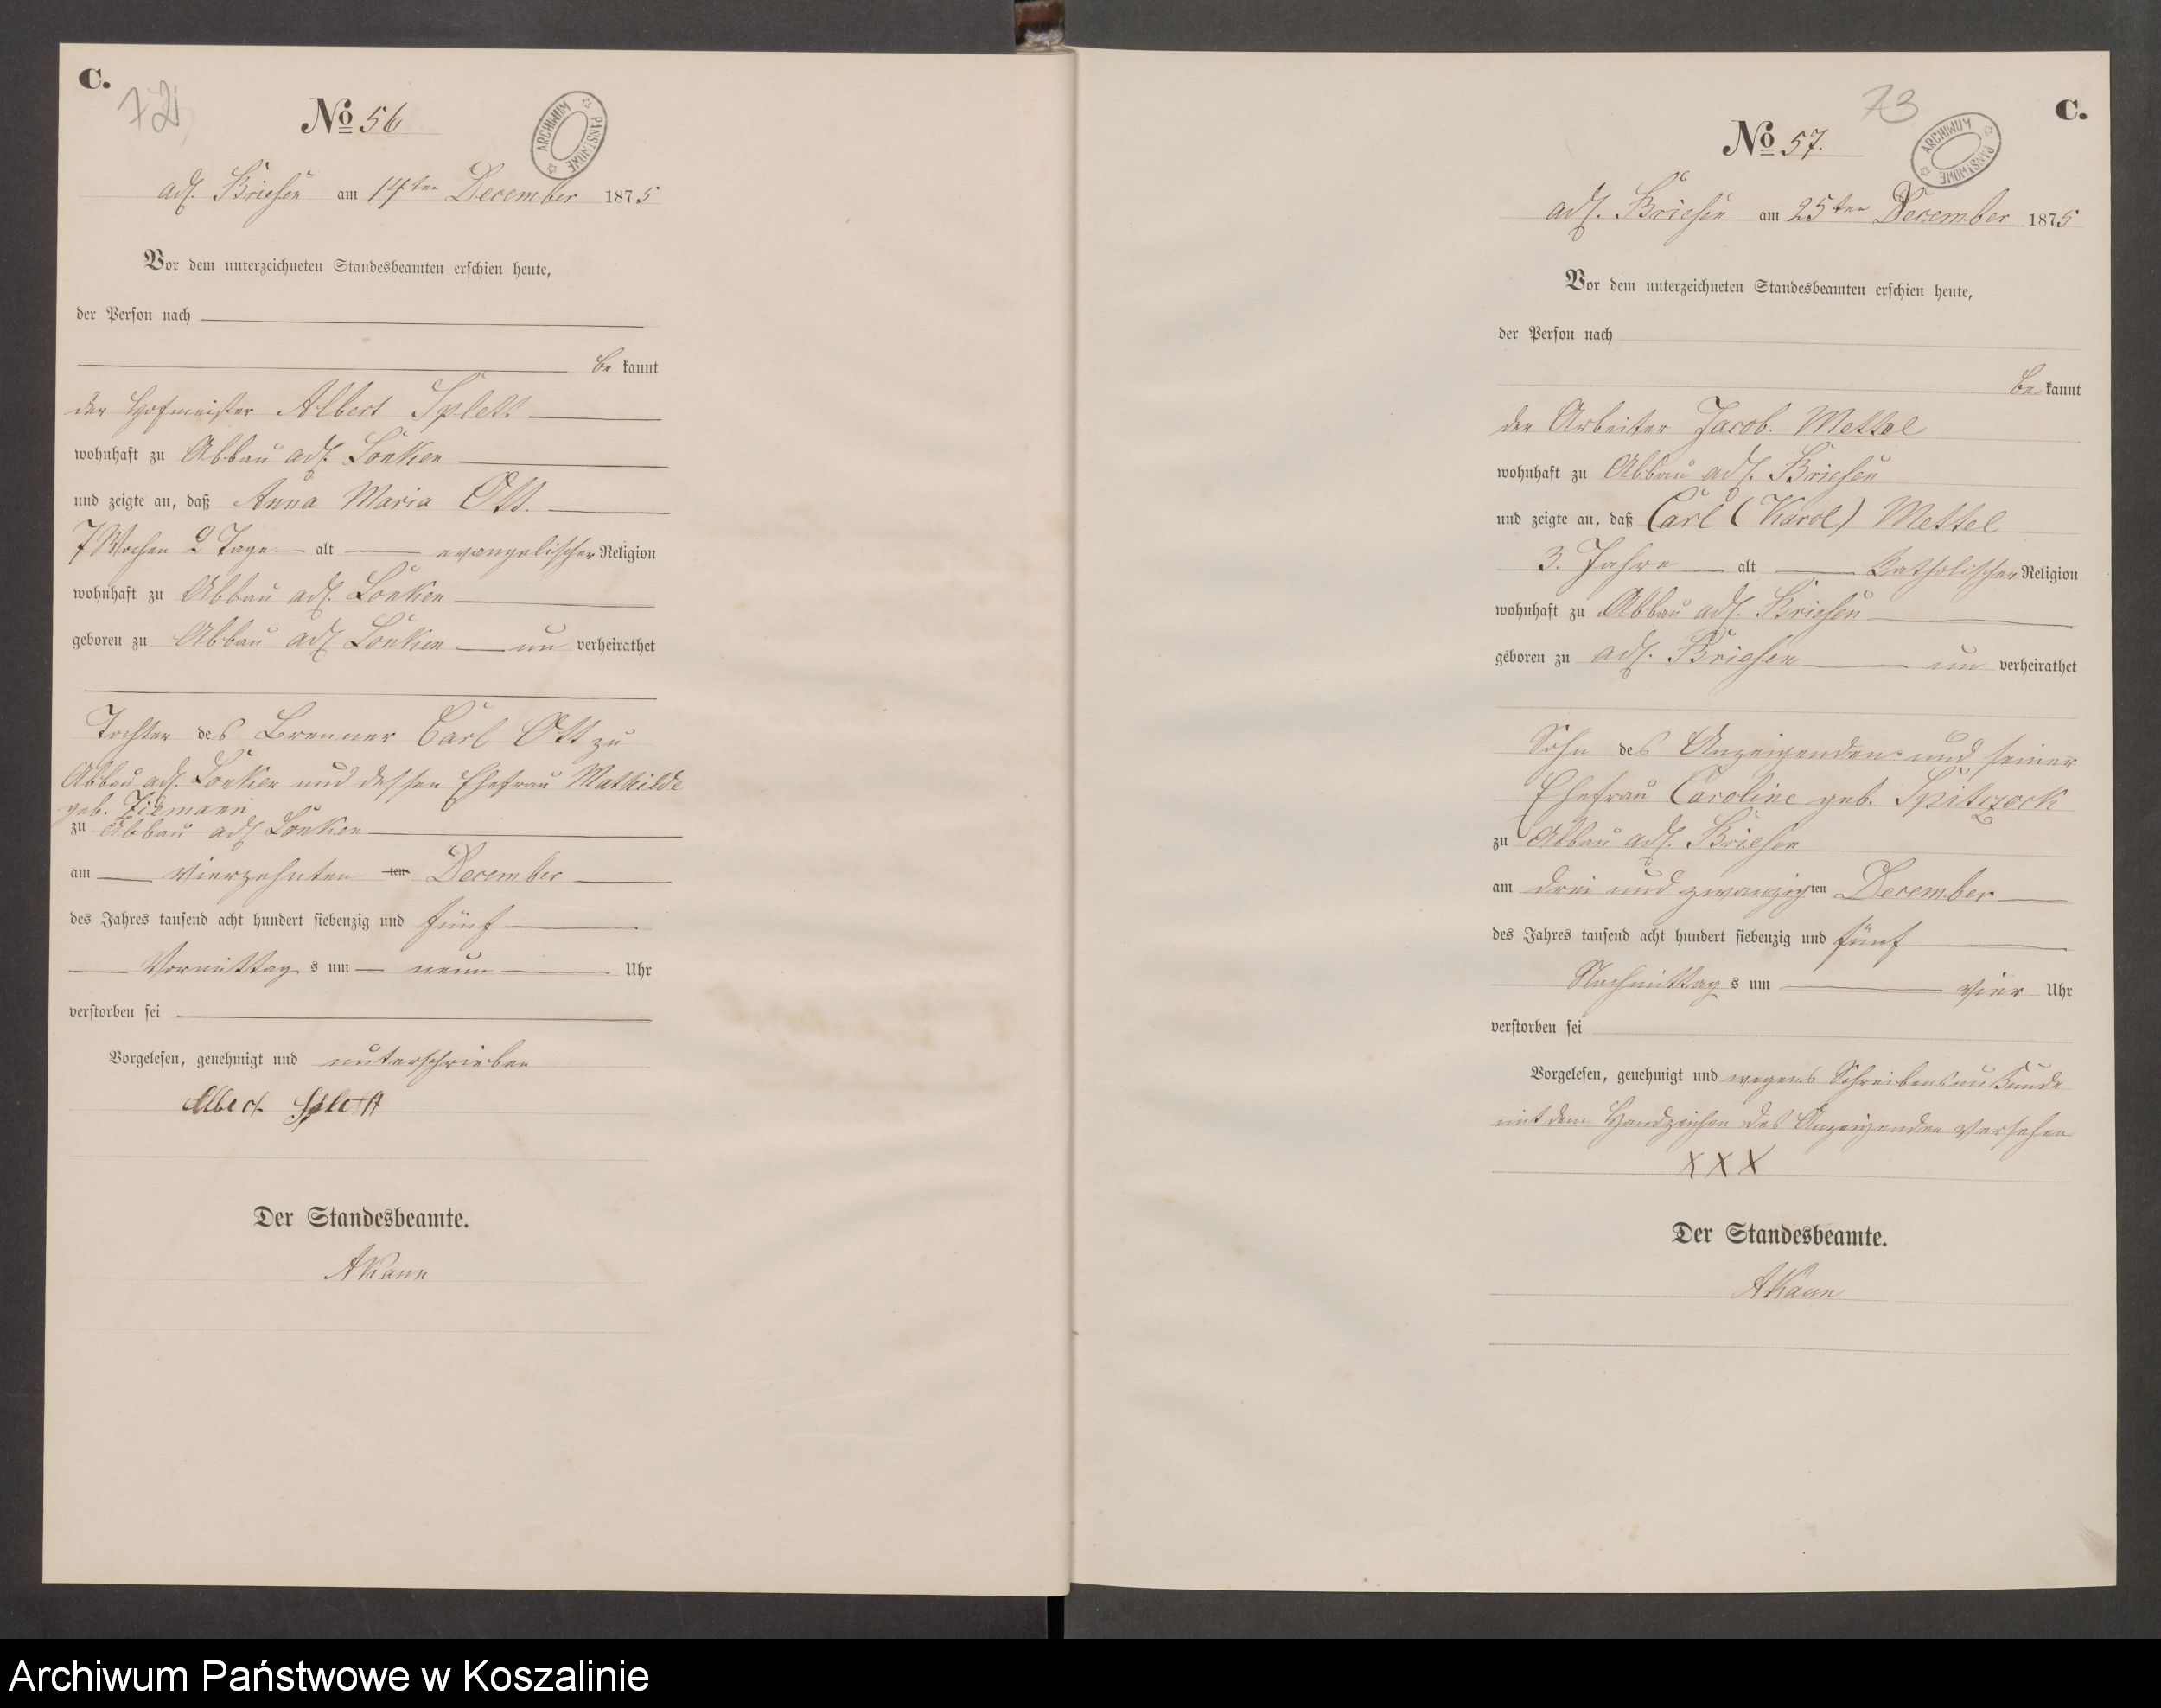 C.
72
No 56
ARCHIWUM PAŃSTWOWE
adl. Briesen am 14ten December 1875
Vor dem unterzeichneten Standesbeamten erschien heute,
der Person nach
be kannt
der Hofmeister Albert Splett
wohnhaft zu Abbau adl. Lonken
und zeigte an, daß Anna Maria Ott.
7 Wochen 2 Tage alt evangelischer Religion
wohnhaft zu Abbau adl. Lonken
geboren zu Abbau adl. Lonken un verheirathet
Tochter des Brenner Carl Ott zu
Abbau adl. Lonken und dessen Ehefrau Mathilde
geb. Ziemann
zu Abbau adl. Lonken
am vierzehnten ten December
des Jahres tausend acht hundert siebenzig und fünf
Vormittag s um neun Uhr
verstorben sei
Vorgelesen, genehmigt und unterschrieben
Albert Splett
Der Standesbeamte.
A Kann
73
C.
No 57.
ARCHIWUM PAŃSTWOWE
adl. Briesen am 25ten December 1875
Vor dem unterzeichneten Standesbeamten erschien heute,
der Person nach
be kannt
der Arbeiter Jacob. Mettel
wohnhaft zu Abbau adl. Briesen
und zeigte an, daß Carl (Karol) Mettel
3. Jahre alt Katholischer Religion
wohnhaft zu Abbau adl. Briesen
geboren zu adl. Briesen un verheirathet
Sohn des Anzeigenden und seiner
Ehefrau Caroline geb. Spitczock
zu Abbau adl. Briesen
am drei und zwanzigten December
des Jahres tausend acht hundert siebenzig und fünf
Nachmittag s um vier Uhr
verstorben sei
Vorgelesen, genehmigt und wegens Schreibensunkunde
mit dem Handzeichen des Anzeigenden versehen
XXX
Der Standesbeamte.
A Kann
Archiwum Państwowe w Koszalinie